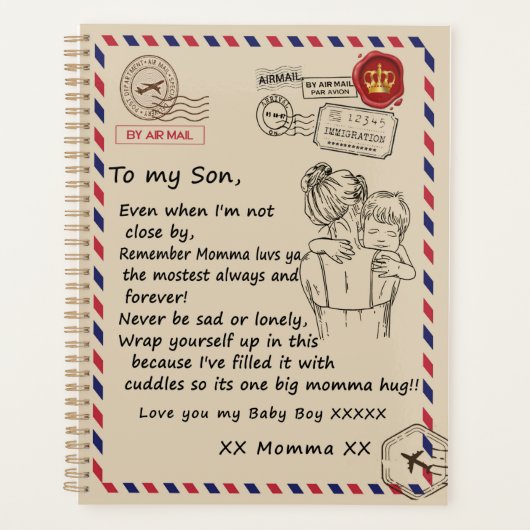 DEPARTMENT · AIR MAIL · SPECIAL
BY AIR MAIL
AIRMAIL
BY AIR MAIL
PAR AVION
ARRIVAL
12345
IMMIGRATION
To my Son,
Even when I'm not
close by,
Remember Momma luvs ya
the mostest always and
forever!
Never be sad or lonely,
Wrap yourself up in this
because I've filled it with
cuddles so its one big momma hug!!
Love you my Baby Boy XXXXX
XX Momma XX